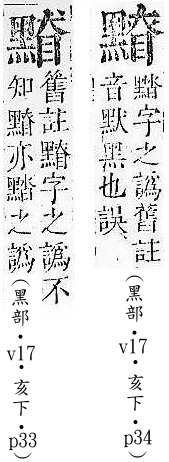 字之譌舊註
音默黑也誤
（黑部・v17・亥下・p34）
舊註字之譌不
知亦之譌
（黑部・v17・亥下・p33）